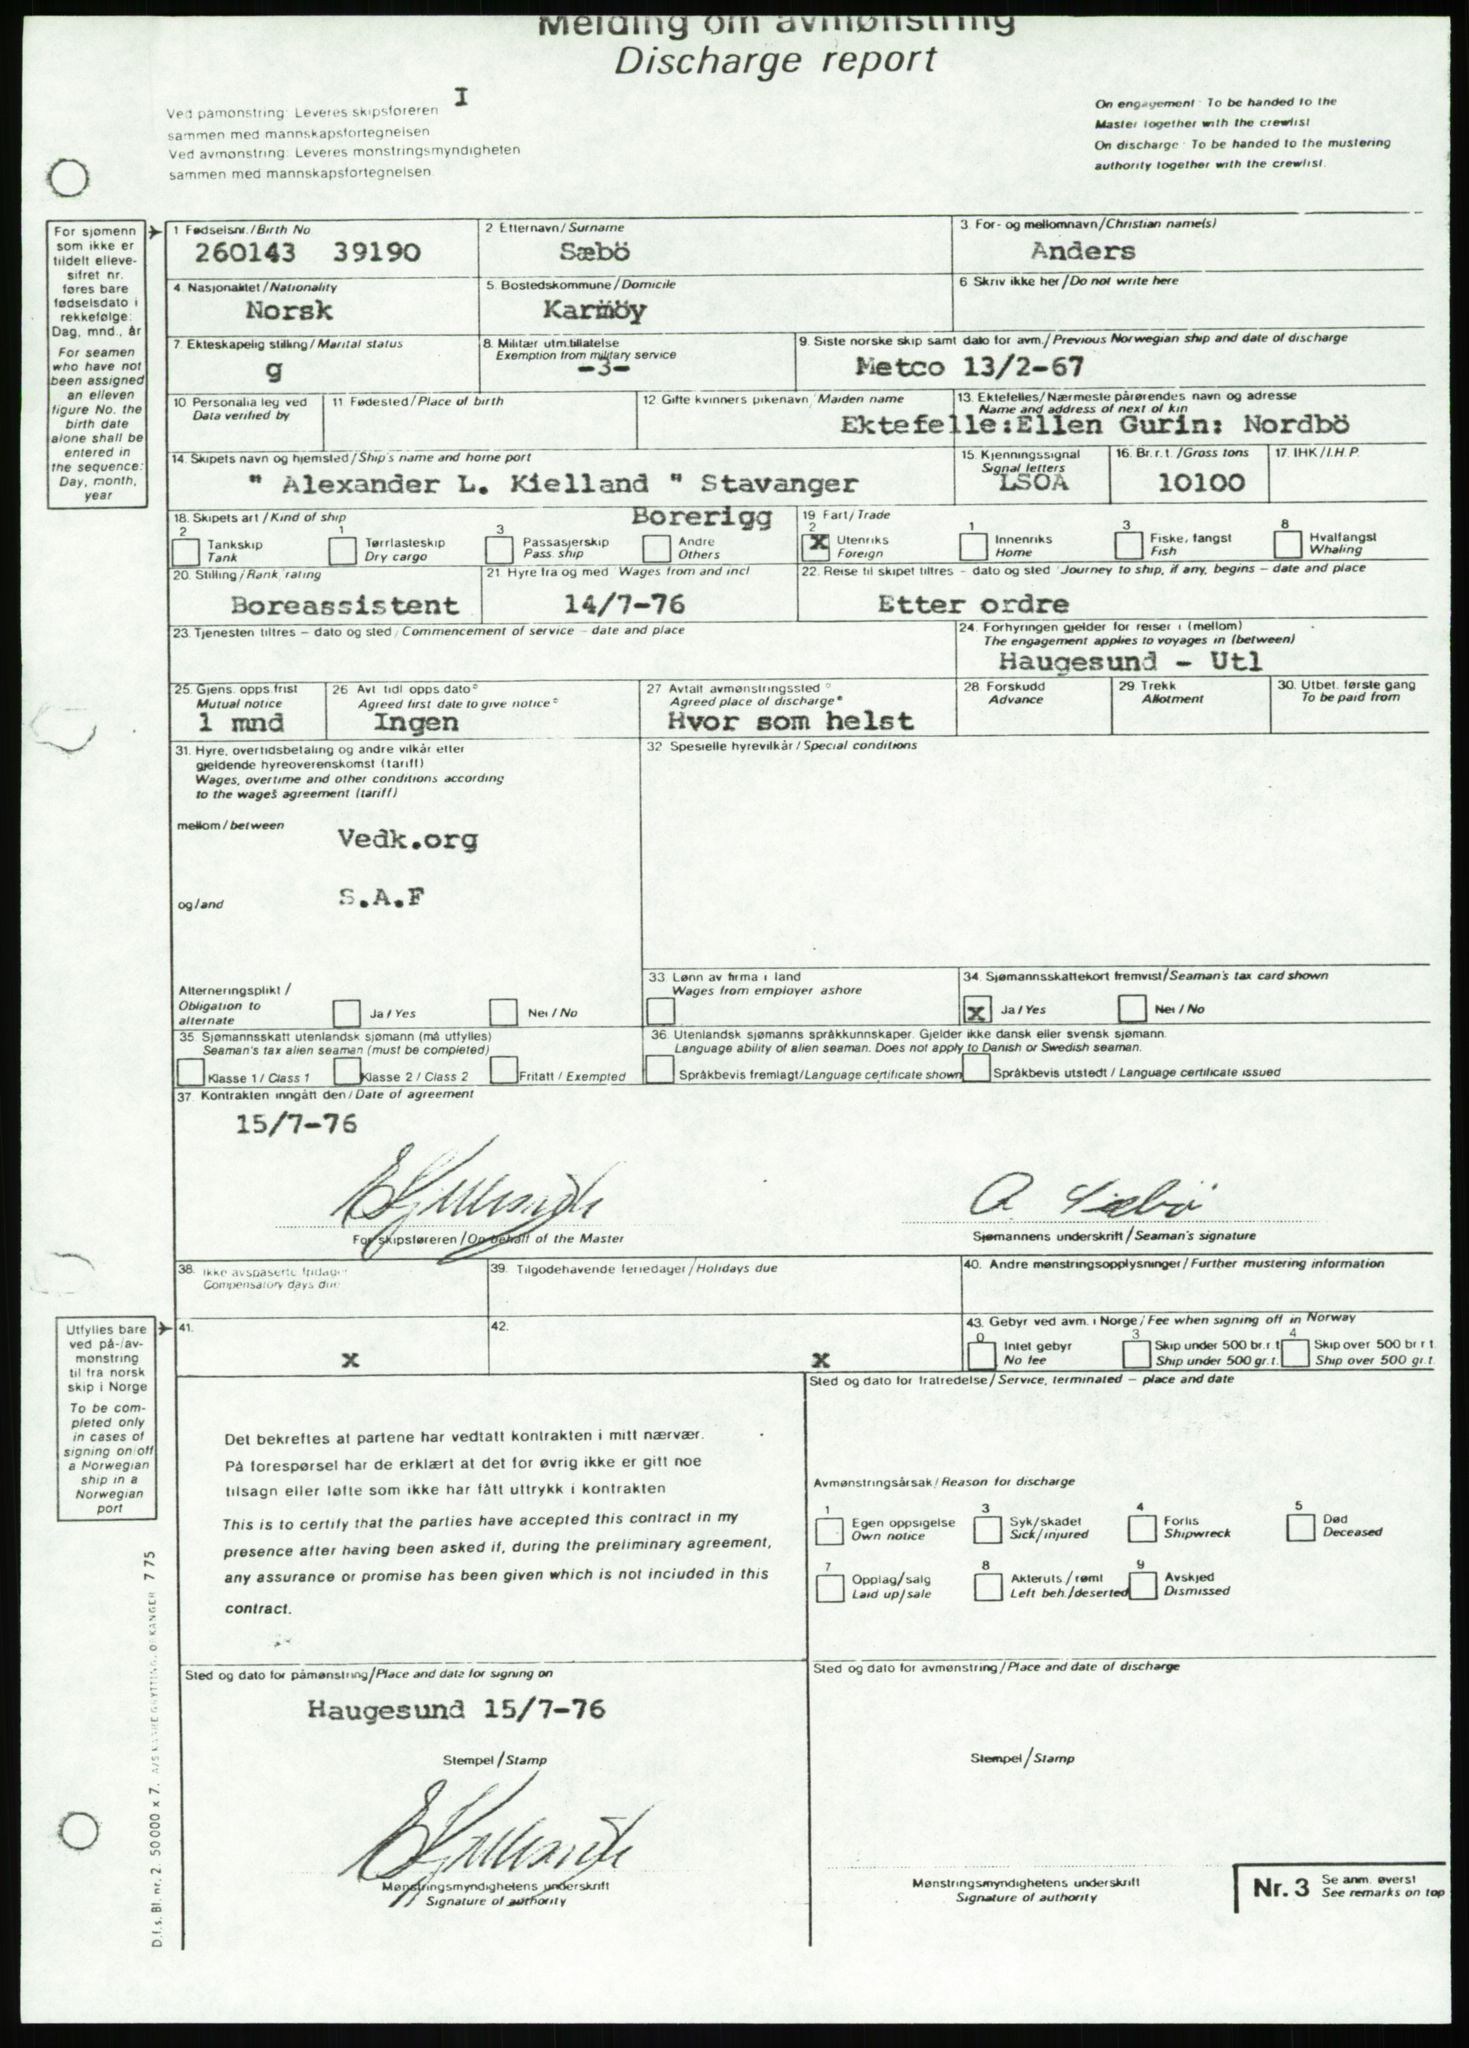 Melding om avmønstring
Discharge report
I
Ved påmønstring: Leveres skipsføreren
sammen med mannskapsfortegnelsen
Ved avmønstring: Leveres mønstringsmyndigheten
sammen med mannskapsfortegnelsen.
On engagement: To be handed to the
Master together with the crewlist
On discharge: To be handed to the mustering
authority together with the crewlist.
For sjømenn
som ikke er
tildelt elleve-
sifret nr.
føres bare
fødselsdato i
rekkefølge:
Dag, mnd., år
For seamen
who have not
been assigned
an elleven
figure No. the
birth date
alone shall be
entered in
the sequence:
Day, month,
year
1 Fødselsnr./Birth No
260143 39190
2 Etternavn/Surname
Sæbö
3. For- og mellomnavn/Christian name(s)
Anders
4. Nasjonalitet/Nationality
Norsk
5. Bostedskommune/Domicile
Karmöy
6 Skriv ikke her/Do not write here
7. Ekteskapelig stilling/Marital status
g
8. Militær utm.tillatelse
Exemption from military service
-3-
9. Siste norske skip samt dato for avm./Previous Norwegian ship and date of discharge
Metco 13/2-67
10. Personalia leg ved
Data verified by
11. Fødested/Place of birth
12. Gifte kvinners pikenavn/Maiden name
13. Ektefelles/Nærmeste pårørendes navn og adresse
Name and address of next of kin
Ektefelle:Ellen Gurin: Nordbö
14. Skipets navn og hjemsted/Ship's name and home port
" Alexander L. Kielland " Stavanger
15. Kjenningssignal
Signal letters
LSOA
16. Br.r.t./Gross tons
10100
17. IHK/I.H.P.
18. Skipets art/Kind of ship
Borerigg
2 Tankskip
Tank
1 Tørrlasteskip
Dry cargo
3 Passasjerskip
Pass. ship
Andre
Others
19 Fart/Trade
2 x Utenriks
Foreign
1 Innenriks
Home
3 Fiske, fangst
Fish
8 Hvalfangst
Whaling
20. Stilling/Rank rating
Boreassistent
21. Hyre fra og med Wages from and incl
14/7-76
22. Reise til skipet tiltres – dato og sted Journey to ship, if any, begins – date and place
Etter ordre
23. Tjenesten tiltres – dato og sted/Commencement of service – date and place
24. Forhyringen gjelder for reiser i (mellom)
The engagement applies to voyages in (between)
Haugesund - Utl
25. Gjens. opps.frist
Mutual notice
1 mnd
26 Avt. tidl opps dato*
Agreed first date to give notice*
Ingen
27 Avtalt avmønstringssted*
Agreed place of discharge*
Hvor som helst
28 Forskudd
Advance
29. Trekk
Allotment
30. Utbet. første gang
To be paid from
31. Hyre, overtidsbetaling og andre vilkår etter
gjeldende hyreoverenskomst (tariff)
Wages, overtime and other conditions according
to the wages agreement (tariff)
mellom/between
Vedk.org
og/and
S.A.F
32 Spesielle hyrevilkår/Special conditions
Alterneringsplikt/
Obligation to
alternate
Ja/Yes
Nei/No
33. Lønn av firma i land
Wages from employer ashore
34. Sjømannsskattekort fremvist/Seaman's tax card shown
x Ja/Yes
Nei/No
35. Sjømannsskatt utenlandsk sjømann (må utfylles)
Seaman's tax alien seaman (must be completed)
Klasse 1/Class 1
Klasse 2/Class 2
Fritatt/Exempted
36. Utenlandsk sjømanns språkkunnskaper. Gjelder ikke dansk eller svensk sjømann.
Language ability of alien seaman. Does not apply to Danish or Swedish seaman.
Språkbevis fremlagt/Language certificate shown
Språkbevis utstedt/Language certificate issued
37. Kontrakten inngått den/Date of agreement
15/7-76
A. Sæbö
For skipsføreren/On behalf of the Master
Sjømannens underskrift/Seaman's signature
38. Ikke avspaserte fridager
Compensatory days due
39. Tilgodehavende feriedager/Holidays due
40. Andre mønstringsopplysninger/Further mustering information
Utfylles bare
ved på-/av-
mønstring
til fra norsk
skip i Norge
To be com-
pleted only
in cases of
signing on/off
a Norwegian
ship in a
Norwegian
port
41.
x
42.
x
43. Gebyr ved avm. i Norge/Fee when signing off in Norway
0 Intet gebyr
No fee
3 Skip under 500 br.r.t
Ship under 500 gr.t.
4 Skip over 500 br r t.
Ship over 500 gr.t.
Det bekreftes at partene har vedtatt kontrakten i mitt nærvær.
På forespørsel har de erklært at det for øvrig ikke er gitt noe
tilsagn eller løfte som ikke har fått uttrykk i kontrakten
This is to certify that the parties have accepted this contract in my
presence after having been asked if, during the preliminary agreement,
any assurance or promise has been given which is not included in this
contract.
Sted og dato for fratredelse/Service, terminated – place and date
Avmønstringsårsak/Reason for discharge
1 Egen oppsigelse
Own notice
3 Syk/skadet
Sick/injured
4 Forlis
Shipwreck
5 Død
Deceased
7 Opplag/salg
Laid up/sale
8 Akteruts/rømt
Left beh./deserted
9 Avskjed
Dismissed
Sted og dato for påmønstring/Place and date for signing on
Haugesund 15/7-76
Stempel/Stamp
Mønstringsmyndighetens underskrift
Signature of authority
Sted og dato for avmønstring/Place and date of discharge
Stempel/Stamp
Mønstringsmyndighetens underskrift
Signature of authority
Nr. 3 Se anm. øverst
See remarks on top
D.f.s. Bl. nr. 2. 50 000 x 7. A/S KAARE GRYTTING, ORKANGER 7 75